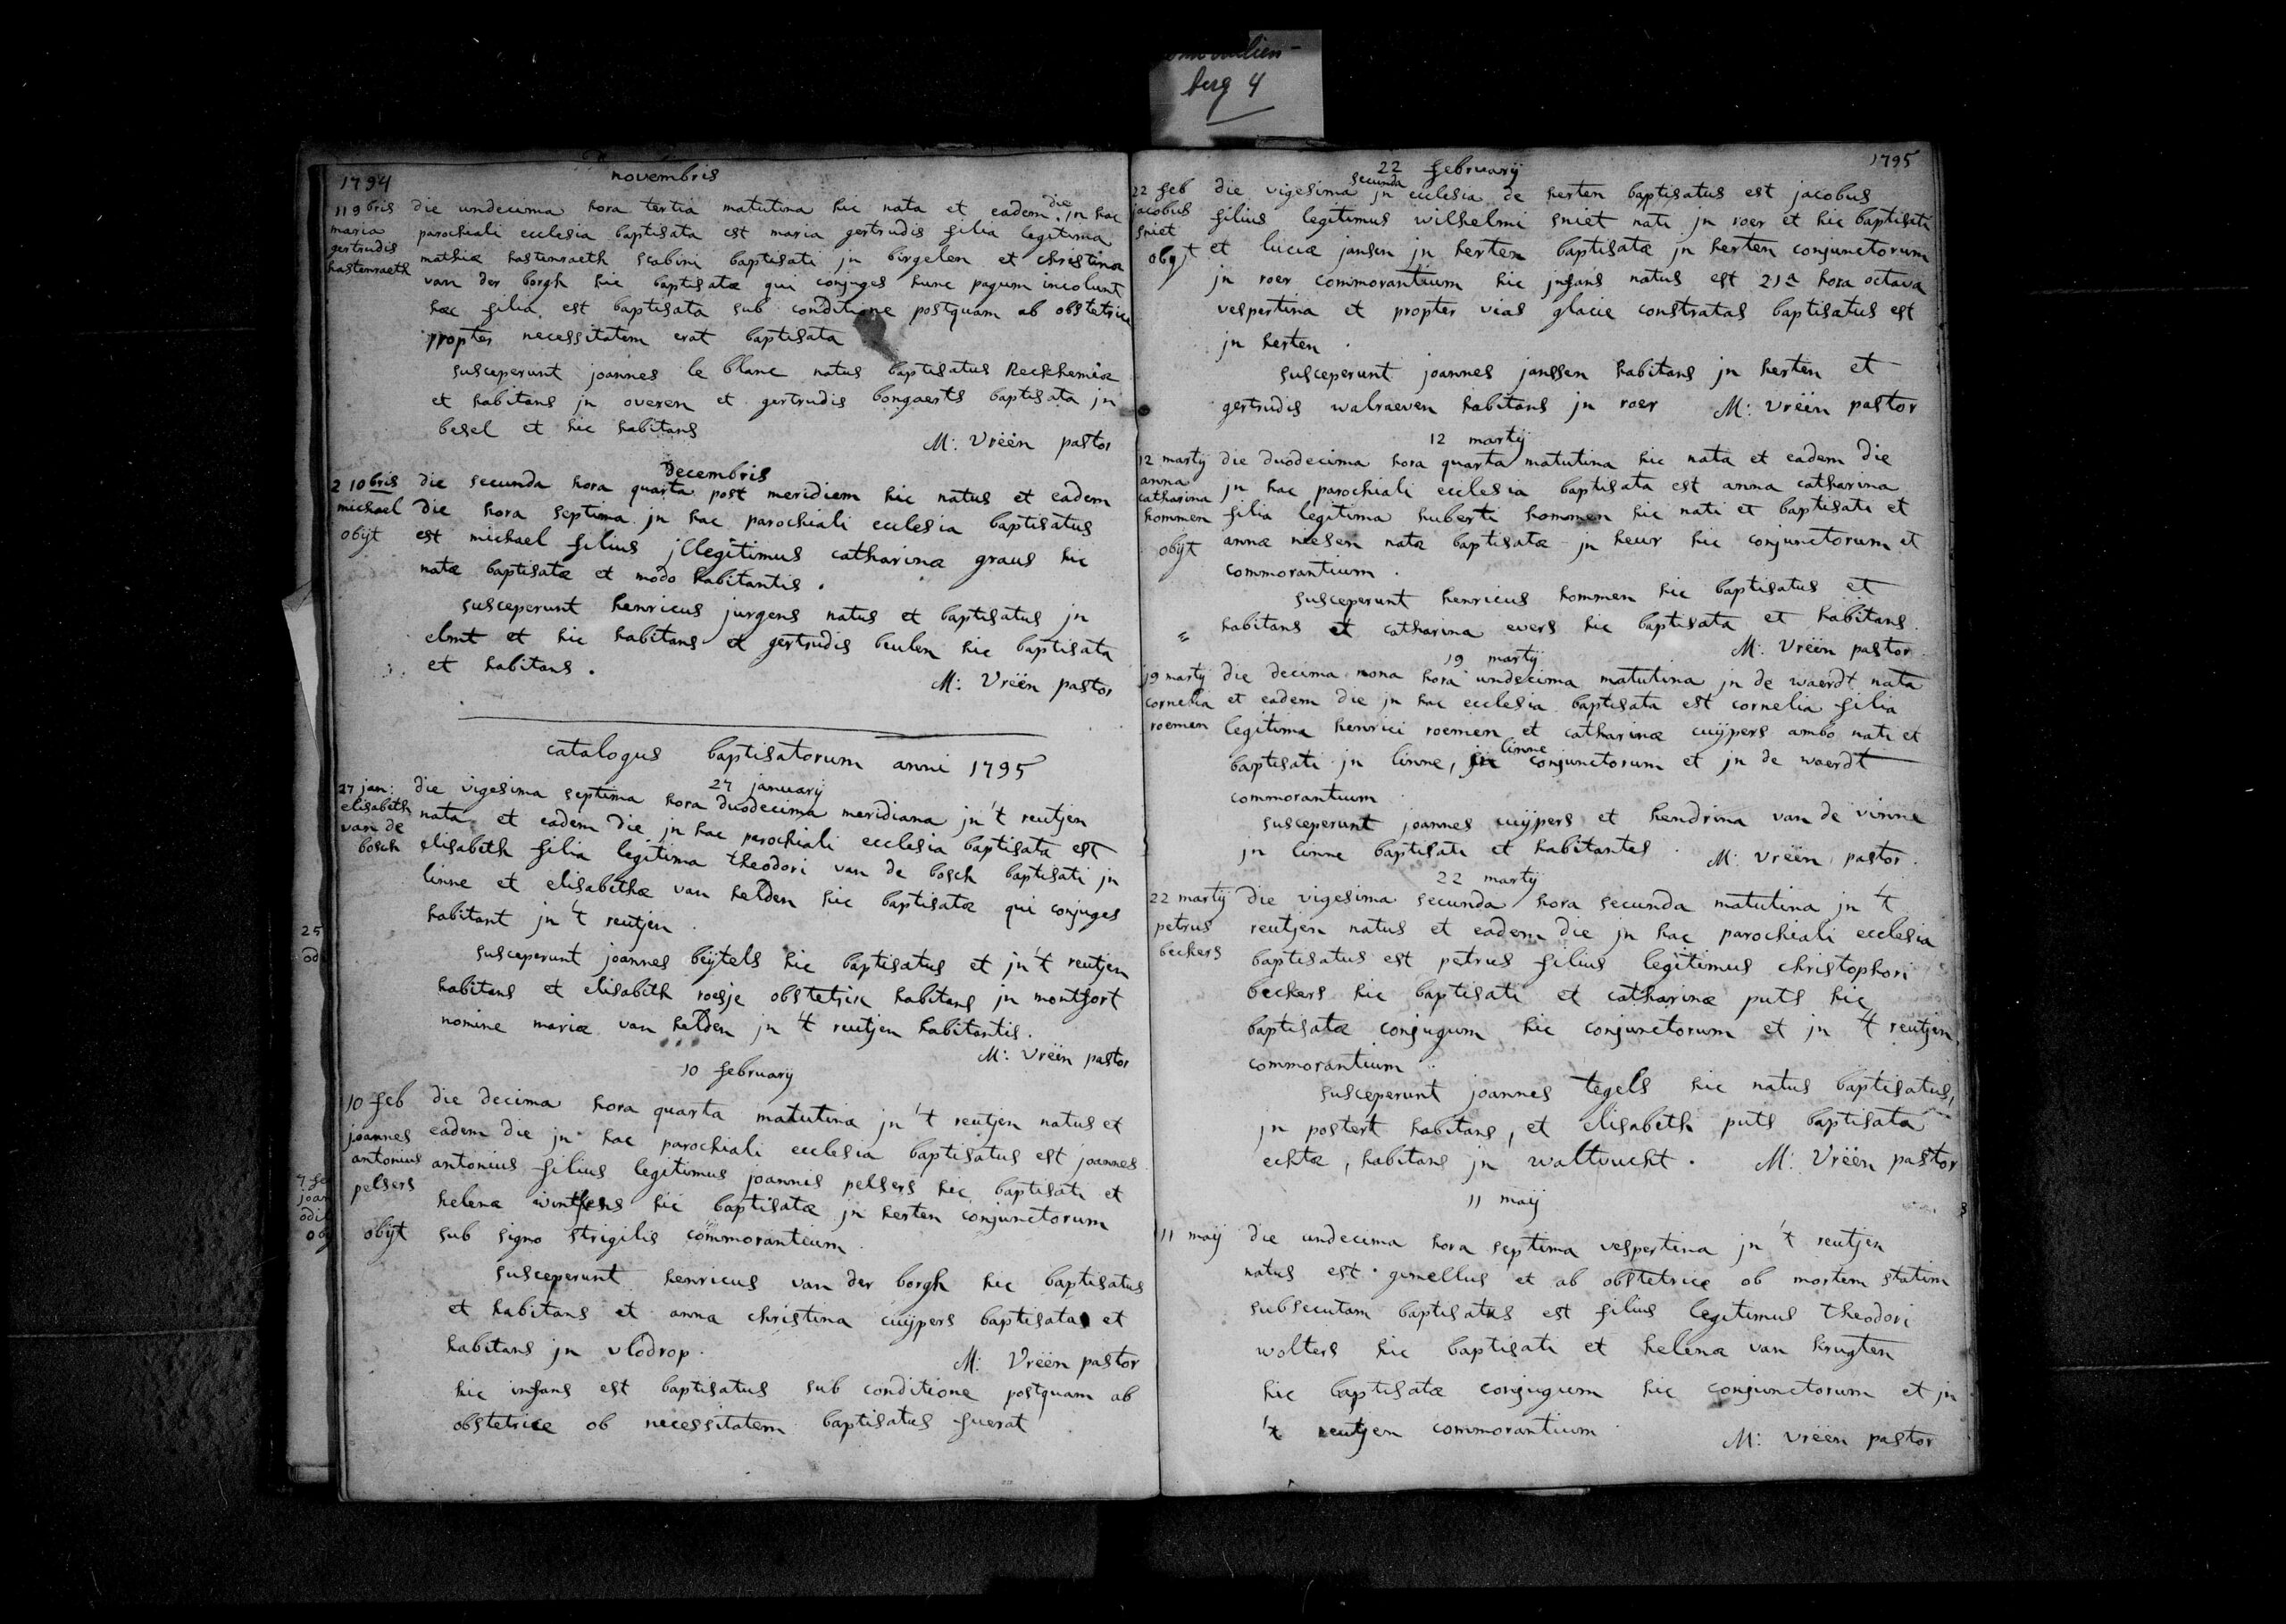 berg 4
1794
novembris
11 9bris
maria
gertrudis
hastenraeth
die undecima hora tertia matutina hic nata et eadem die jn hac
parochiali ecclesia baptisata est maria gertrudis filia legitima
mathiæ hastenraeth scabini baptisati jn birgelen et christinæ
van der borgh hic baptisatæ qui conjuges hunc pagum incolunt
hæc filia est baptisata sub conditione postquam ab obstetrice
propter necessitatem erat baptisata
susceperunt joannes le blanc natus baptisatus Reckhemiæ
et habitans jn overen et gertrudis bongaerts baptisata jn
besel et hic habitans
M: Vrëen pastor
decembris
2 10bris
michael
obijt
die secunda hora quarta post meridiem hic natus et eadem
die hora septima jn hac parochiali ecclesia baptisatus
est michael filius jllegitimus catharinæ graus hic
natæ baptisatæ et modo habitantis.
susceperunt henricus jurgens natus et baptisatus jn
elmt et hic habitans et gertrudis beulen hic baptisata
et habitans.
M: Vrëen pastor
catalogus baptisatorum anni 1795
27 january
27 jan:
elisabeth
van de
bosch
die vigesima septima hora duodecima meridiana jn 't reutjen
nata et eadem die jn hac parochiali ecclesia baptisata est
elisabeth filia legitima theodori van de bosch baptisati jn
linne et elisabethæ van helden hic baptisatæ qui conjuges
habitant jn 't reutjen.
susceperunt joannes beijtels hic baptisatus et jn 't reutjen
habitans et elisabeth roesje obstetrix habitans jn montfort
nomine mariæ van helden jn 't reutjen habitantis.
M: Vrëen pastor
10 february
10 feb
joannes
antonius
pelsers
obijt
die decima hora quarta matutina jn 't reutjen natus et
eadem die jn hac parochiali ecclesia baptisatus est joannes
antonius filius legitimus joannis pelsers hic baptisati et
helenæ hic baptisatæ jn herten conjunctorum
sub signo strigilis commorantium.
susceperunt henricus van der borgh hic baptisatus
et habitans et anna christina cuijpers baptisata et
habitans jn vlodrop.
M: Vrëen pastor
hic infans est baptisatus sub conditione postquam ab
obstetrice ob necessitatem baptisatus fuerat
1795
22 february
22 feb
jacobus
sniet
obijt
die vigesima secunda jn ecclesia de herten baptisatus est jacobus
filius legitimus wilhelmi sniet nati jn roer et hic baptisati
et luciæ jansen jn herten baptisatæ jn herten conjunctorum
jn roer commorantium hic jnfans natus est 21a hora octava
vespertina et propter vias glacie constratas baptisatus est
jn herten.
susceperunt joannes janssen habitans jn herten et
gertrudis walraeven habitans jn roer M: Vrëen pastor
12 martij
12 martij
anna
catharina
hommen
obijt
die duodecima hora quarta matutina hic nata et eadem die
jn hac parochiali ecclesia baptisata est anna catharina
filia legitima huberti hommen hic nati et baptisati et
annæ niesen natæ baptisatæ jn heur hic conjunctorum et
commorantium.
susceperunt henricus hommen hic baptisatus et
habitans et catharina evers hic baptisata et habitans.
M: Vrëen pastor
19 martij
19 martij
cornelia
roemen
die decima nona hora undecima matutina jn de waerdt nata
et eadem die jn hac ecclesia baptisata est cornelia filia
legitima henrici roemen et catharinæ cuijpers ambo nati et
baptisati jn linne, jn linne conjunctorum et jn de waerdt
commorantium.
susceperunt joannes cuijpers et hendrina van de vinne
jn linne baptisati et habitantes. M: Vrëen pastor.
22 martij
22 martij
petrus
beckers
die vigesima secunda hora secunda matutina jn 't
reutjen natus et eadem die jn hac parochiali ecclesia
baptisatus est petrus filius legitimus christophori
beckers hic baptisati et catharinæ puts hic
baptisatæ conjugum hic conjunctorum et jn 't reutjen
commorantium.
susceperunt joannes tegels hic natus baptisatus,
jn postert habitans, et elisabeth puts baptisata
echtæ, habitans jn waltvucht. M: Vrëen pastor
11 maij
11 maij
die undecima hora septima vespertina jn 't reutjen
natus est gemellus et ab obstetrice ob mortem statim
subsecutam baptisatus est filius legitimus theodori
wolters hic baptisati et helenæ van krugten
hic baptisatæ conjugum hic conjunctorum et jn
't reutjen commorantium.
M: Vrëen pastor